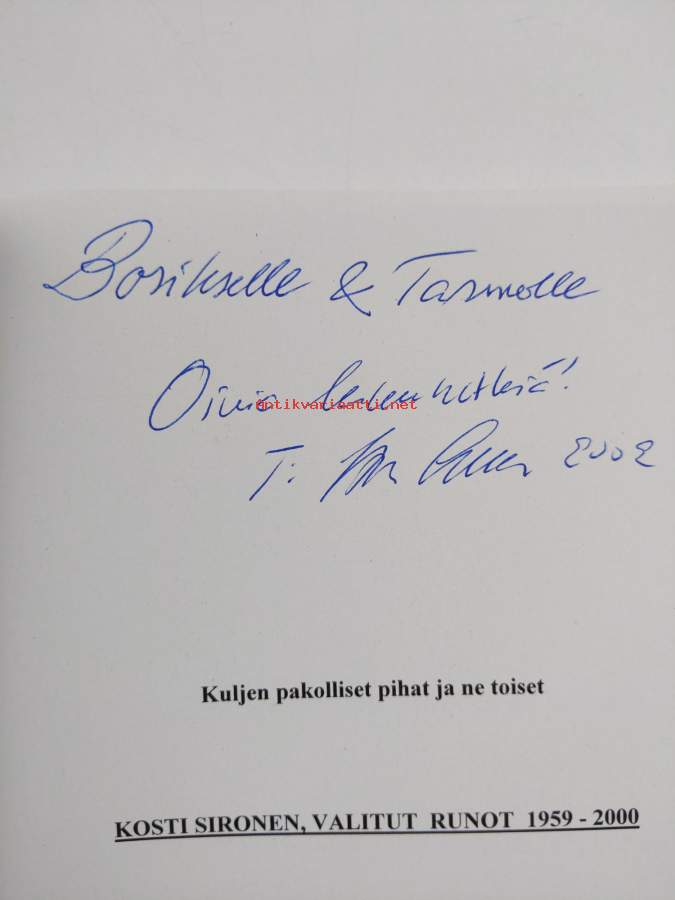 Borikselle & Tarmolle
Oivia lukuhetkiä!
antikvariaatti.net
T: 2002
Kuljen pakolliset pihat ja ne toiset
KOSTI SIRONEN, VALITUT RUNOT 1959 - 2000